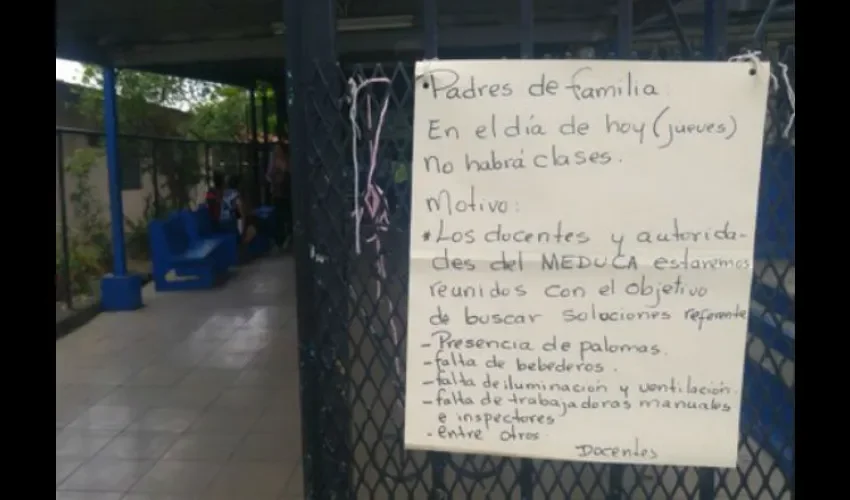 Padres de familia:
En el día de hoy (jueves)
no habrá clases.
Motivo:
*Los docentes y autorida-
des del MEDUCA estaremos
reunidos con el objetivo
de buscar soluciones referente
- Presencia de palomas.
- falta de bebederos.
- falta de iluminación y ventilación.
- falta de trabajadoras manuales
e inspectores
- entre otros.
Docentes